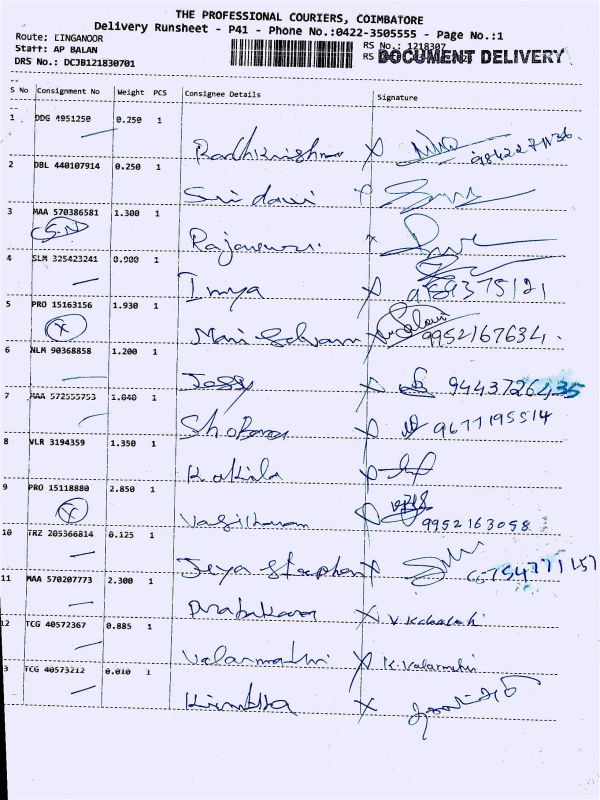 THE PROFESSIONAL COURIERS, COIMBATORE
Delivery Runsheet - P41 - Phone No.:0422-3505555 - Page No.:1
Route: LINGANOOR
Staff: AP BALAN
RS No.: 1218307
DRS No.: DCJB121830701
RS
DOCUMENT DELIVERY
S No Consignment No Weight PCS Consignee Details Signature
1 DDG 4951250 0.250 1
Radhkrishna X
2 DBL 440107914 0.250 1
Sri devi
3 MAA 570386581 1.300 1
Rajeswari X
4 SLM 325423241 0.900 1
Imya X 9584375121
5 PRO 15163156 1.930 1
Mani Selvam X 9952167634
6 NLM 90368858 1.200 1
Jessy X 9443726435
7 MAA 572555753 1.040 1
Shobana X 9677195514
8 VLR 3194359 1.350 1
Kokila X
9 PRO 15118880 2.850 1
X 9952163058
10 TRZ 205366814 0.125 1
Jeya Stephen X
11 MAA 570207773 2.300 1
Prabakaran X
12 TCG 40572367 0.885 1
Valarmathi X K. Valarmathi
3 TCG 40573212 0.010 1
X